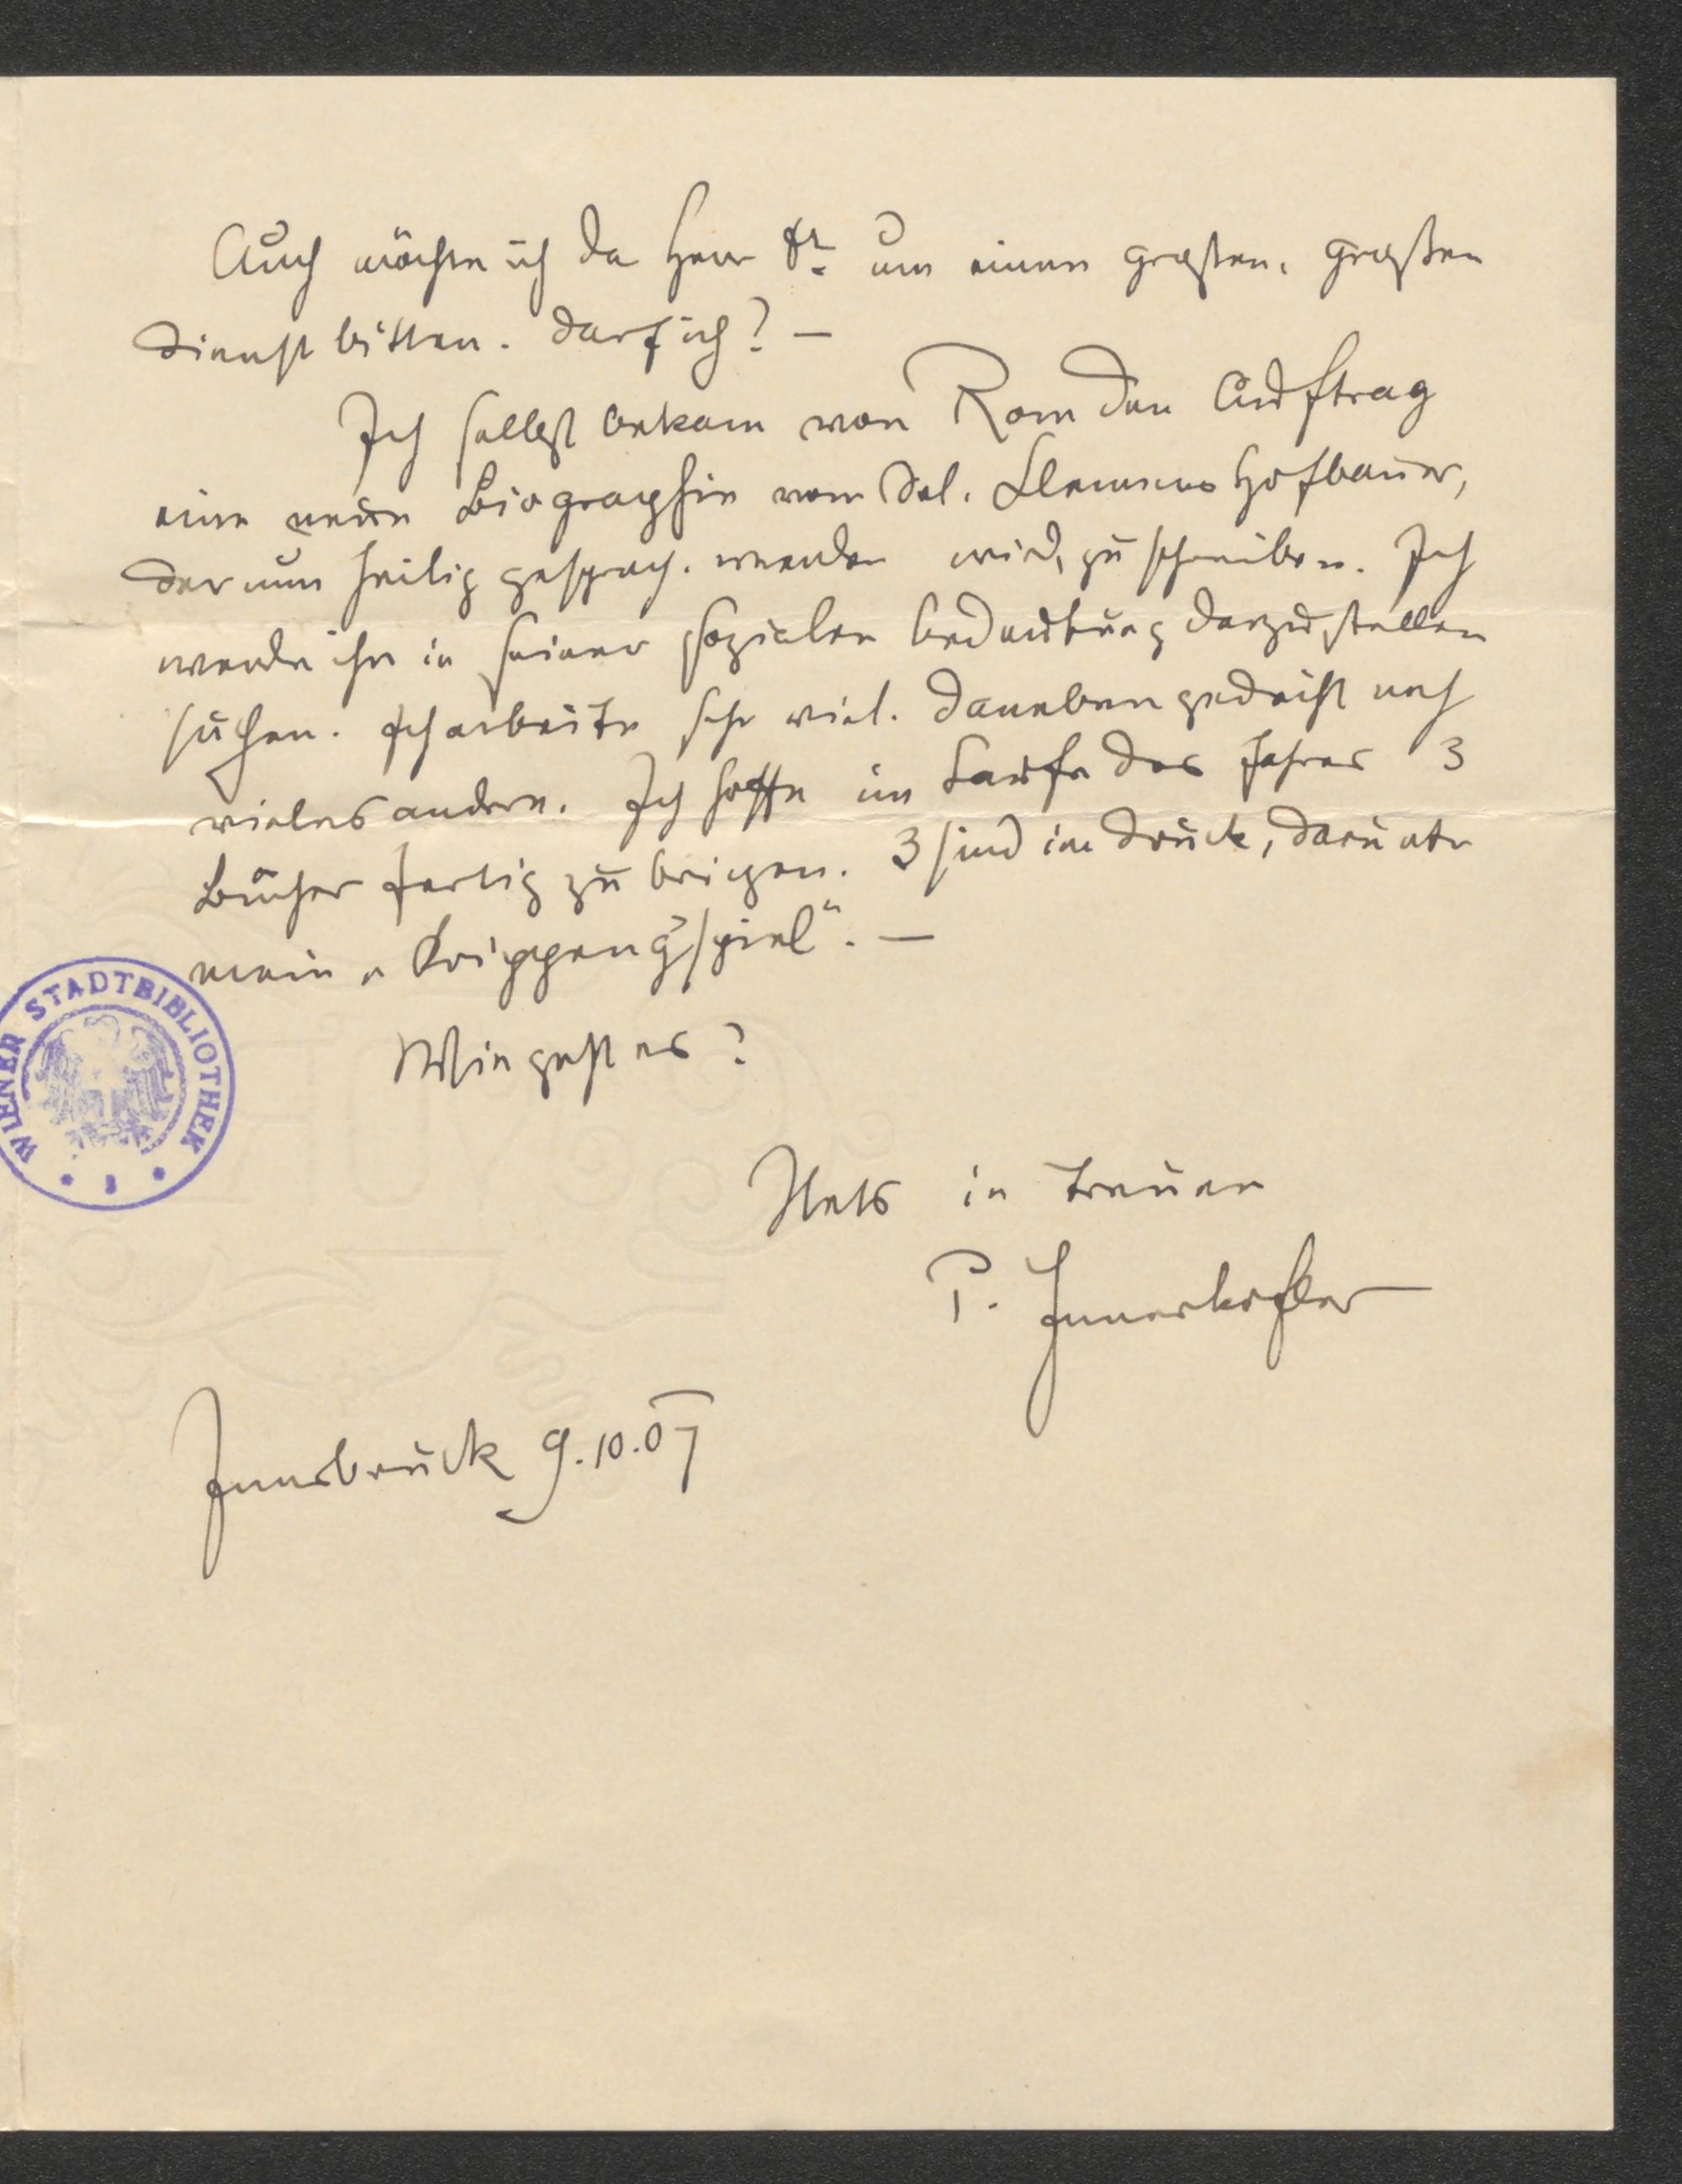 Auch möchte ich da Herr Dr. um einen großen, großen
Dienst bitten. Darf ich? —
Ich selbst bekam von Rom den Auftrag
eine neue Biographie vom sel. Clemens Hofbauer,
der nun heilig gesproch. werden wird, zu schreiben. Ich
werde ihn in seiner sozialen Bedeutung darzustellen
suchen. Ich arbeite sehr viel. Daneben gedeiht noch
vieles andere. Ich hoffe im Laufe des Jahres 3
Bücher fertig zu bringen. 3 sind im Druck, darunter
mein „Krippeng'spiel“. —
Wie geht es?
Stets in Treuen
P. Innerkofler
Innsbruck 9.10.07
WIENER STADTBIBLIOTHEK